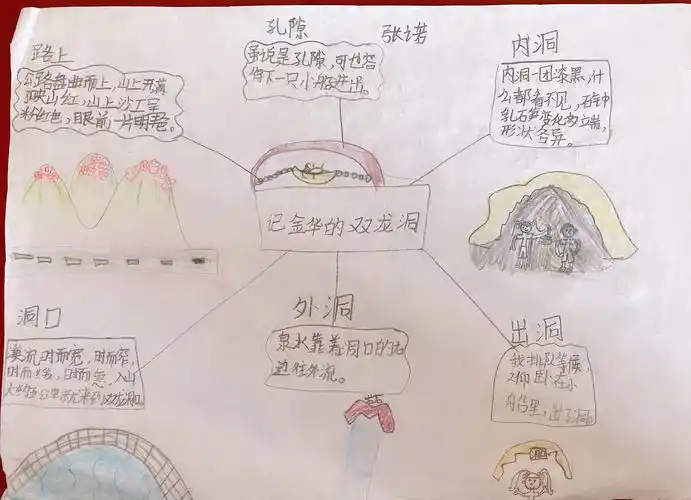 孔隙
张诺
路上
内洞
公路盘曲而上,山上开满
映山红,山上沙土呈
粉红色,眼前一片明艳。
虽说是孔隙,可也容
得下一只小船进出。
内洞一团漆黑,什
么都看不见,石钟
乳石笋变化多端,
形状各异。
记金华的双龙洞
洞口
外洞
出洞
溪流时而宽,时而窄,
时而缓,时而急,入山
大约五公里就来到双龙洞。
泉水靠着洞口的右
边往外流。
我排队等候,
又仰卧在小
船里,出了洞。
洞